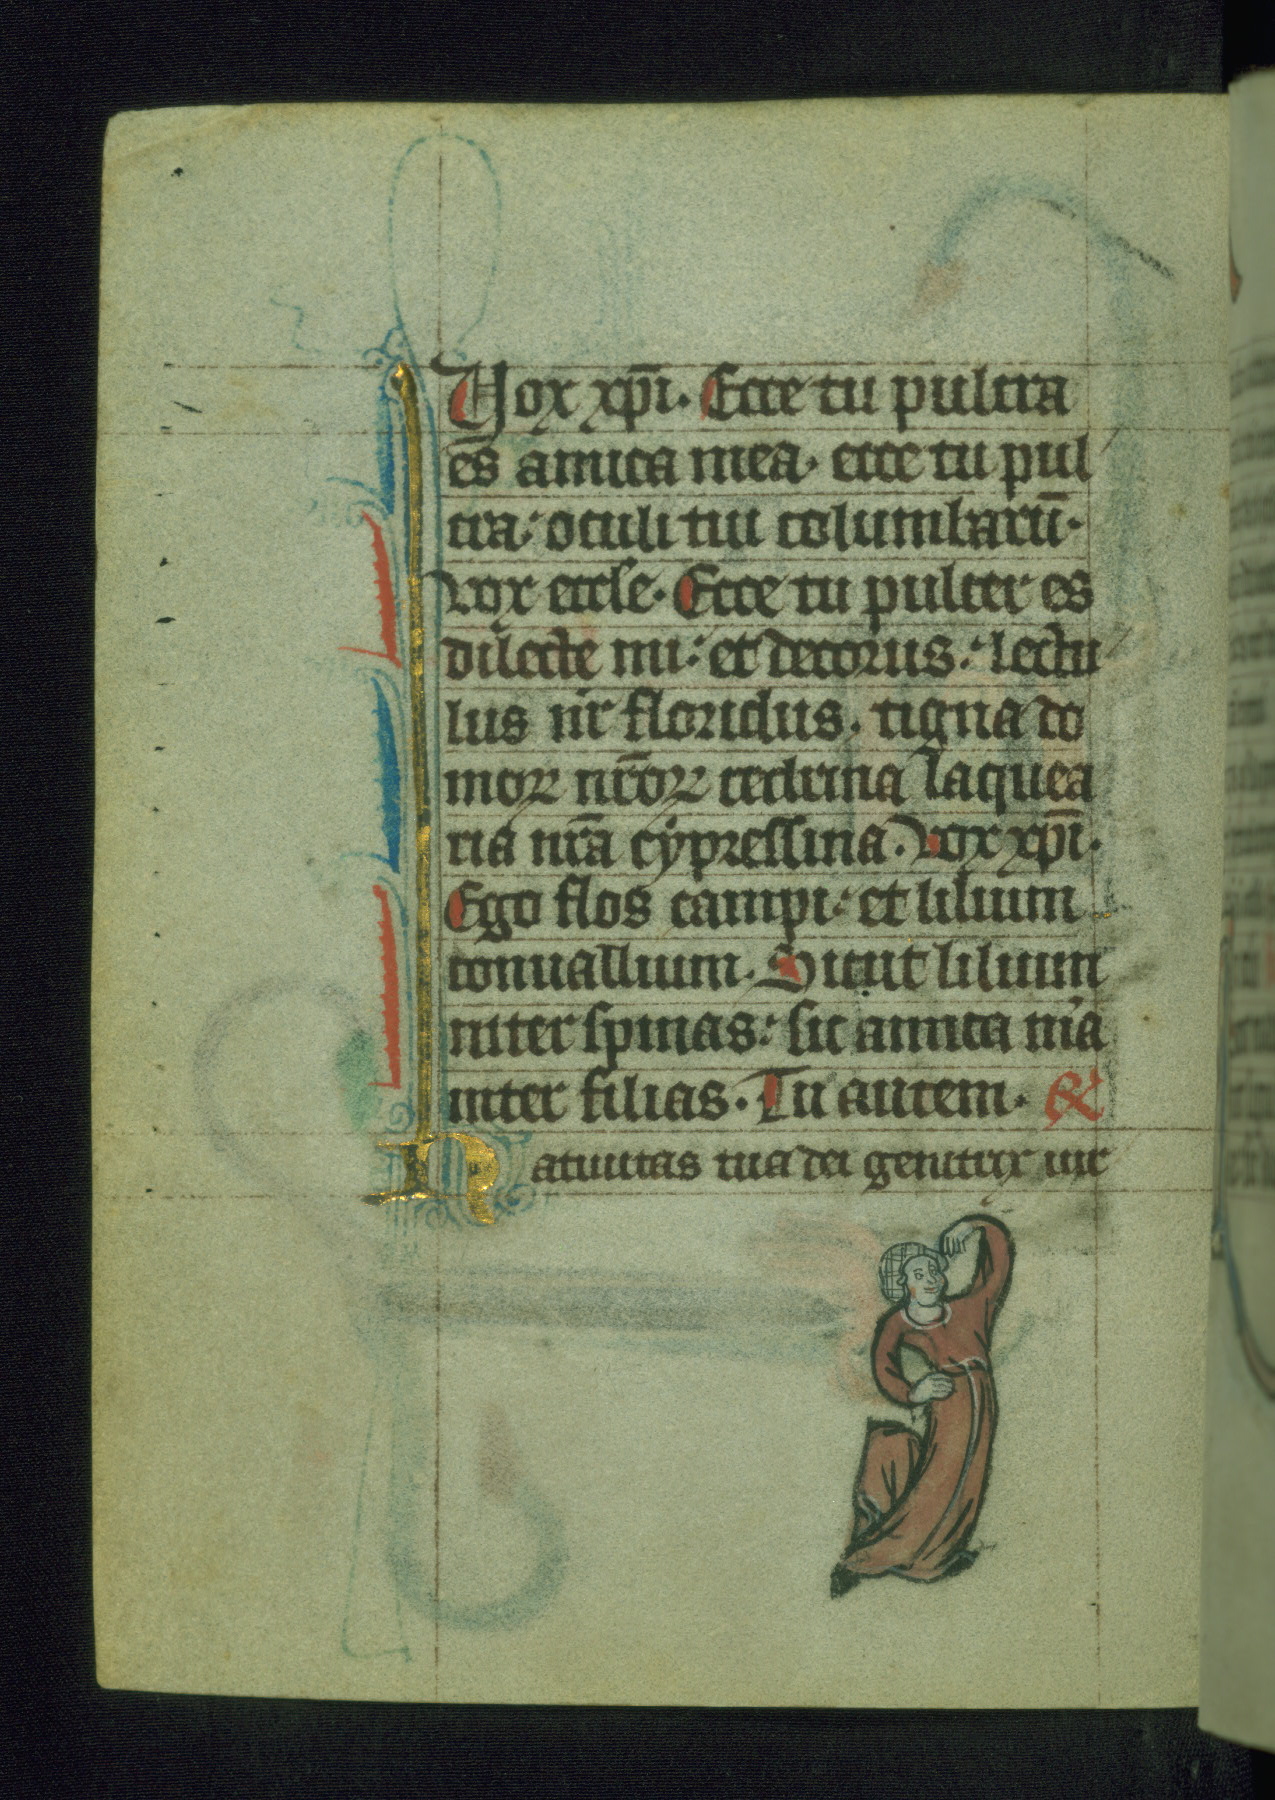 Vox xp̄i. Ecce tu pulcra
es amica mea. ecce tu pul
cra: oculi tui columbarū.
vox eccl'e. Ecce tu pulcer es
dilecte mi: et decorus: lectu
lus nr̄ floridus. tigna do
moꝝ nr̄oꝝ cedrina laquea
ria nr̄a cypressina. vox xp̄i.
Ego flos campi: et lilium
conuallium. Sicut lilium
inter spinas: sic amica mͣa
inter filias. Tu autem. R̷
Natiuitas tua dei genitrix uir